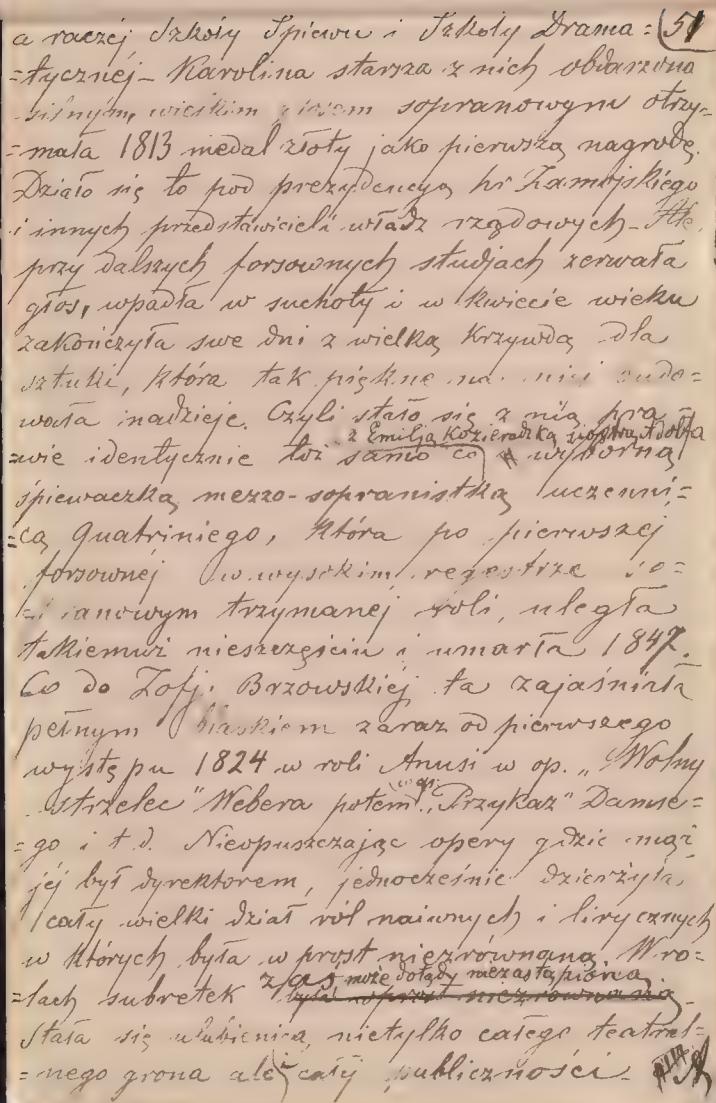 a raczéj Szkoły Śpiewu i Szkoły Drama= 51
=tycznéj – Karolina starsza z nich obdarzona
silnym, wielkim głosem sopranowym otrzy=
=mała 1813 medal złoty jako pierwszą nagrodę.
Działo się to pod prezydencyą hr Zamojskiego
i innych przedstawicieli władz rządowych – Ale
przy dalszych forsownych studjach zerwała
głos, wpadła w suchoty i w kwiecie wieku
zakończyła swe dni z wielką krzywdą dla
sztuki, która tak piękne na niéj budo=
wała nadzieje. Czyli stało się z nią pra=
z Emilją Kozieradzką siostrą Adolfa
=wie identycznie toż samo co wyborną
śpiewaczką mezzo-sopranistką uczenni=
=cą Quatriniego, która po pierwszej
forsownéj w wysokim regestrze so=
=pranowym trzymanej roli, uległa
takiemuż nieszczęściu i umarła 1847.
Co do Zofji Brzowskiéj ta zajaśniała
pełnym blaskiem zaraz od pierwszego
występu 1824 w roli Anusi w op. „Wolny
strzelec" Webera potem „Przykaz" Damse=
=go i t d. Nieopuszczając opery gdzie mąż
jéj był dyrektorem, jednocześnie dzierżyła
cały wielki dział ról naiwnych i lirycznych
w których była wprost niezrównaną. W ro=
zaś może dotąd niezastąpiona
=lach subretek była wprost niezrównaną
Stała się ulubienicą nietylko całego teatral=
=nego grona ale całéj publiczności –